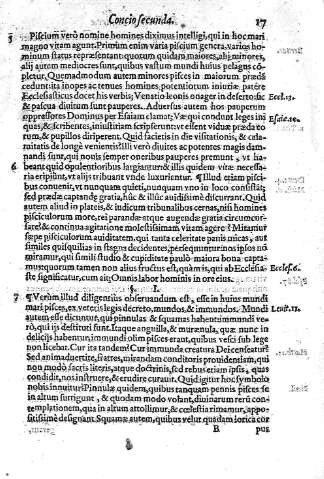 Concio secunda. 17
5 Piscium verò nomine homines diximus intelligi, qui in hoc mari
magno vitam agunt. Primùm enim varia piscium genera, varios ho-
minum status repræsentant: quorum quidam maiores, alij minores,
alij autem mediocres sunt, quibus vastum mundi huius pelagus cō-
pletur. Quemadmodum autem minores pisces in maiorum prædā
cedunt: ita inopes ac tenues homines, potentiorum iniuriæ patére
Ecclesiasticus docet his verbis; Venatio leonis onager in deserto: sic Eccl.13.
& pascua diuitum sunt pauperes. Aduersus autem hos pauperum
oppressores Dominus per Esaiam clamat; Væ qui condunt leges ini Esaiæ.10.
quas, & scribentes, iniustitiam scripserunt: vt essent viduæ præda eo-
rum, & pupillos diriperent. Quid facietis in die visitationis, & cala-
mitatis de longè venientis? Illi verò diuites ac potentes magis dam-
nandi sunt, qui nouis semper oneribus pauperes premunt, vt ha-
6 beant quid opulentioribus largiantur: & illis quidem vitæ necessa-
ria eripiunt, vt alijs tribuant vnde luxurientur. ¶ Illud etiam pisci-
bus conuenit, vt nunquam quieti, nunquam vno in loco consistāt;
sed prædæ captandæ gratia, hùc & illùc auidissimè discurrant. Quid
autem aliud in plateis, & iudicum tribunalibus cernas, nisi homines
pisciculorum more, rei parandæ atque augendæ gratia circumcur-
sare! & continua agitatione molestissimam vitam agere? Mitamur
sæpe pisciculorum auiditatem, qui tanta celeritate panis micas, aut
similes quisquilias in stagna decidentes, persequuntur: nos ipsos nō
miramur, qui simili studio & cupiditate pauló maiora bona capta-
mus: quorum tamen non alius fructus est, quàm is, qui ab Ecclesia- Ecclef.6.
ste significatur, cum ait; Omnis labor hominis in ore eius.
7 ¶ Verùm illud diligentiùs obseruandum est, esse in huius mundi
mari pisces, ex veteris legis decreto, mundos, & immundos. Mundi Leuit.11.
autem esse dicuntur, qui pinnulis & squamas habent: immundi ve-
rò, qui ijs destituti sunt. Itaque anguilla, & murænula, quæ nunc in
delicijs habentur, immundi olim pisces erant, quibus vesci sub lege
non licebat. Cur ita tandem? Cur immunda creatura Dei censetur?
Sed animaduertite, fratres, mirandam conditoris prouidentiam, qui
non modò sacris literis, atque doctrinis, sed rebus etiam ipsis, quas
condidit, nos instruere, & erudire curauit. Quid igitur hoc symbolo
nobis innuitur? Pinnulæ quidem, quibus tanquam pennis pisces se
in altum surrigunt, & quodam modo volant, diuinarum rerū con-
templationem, qua in altum attollimur, & cœlestia rimamur, appo-
sitissimè designant. Squamæ autem, quibus velut quadam lorica cor
B pus